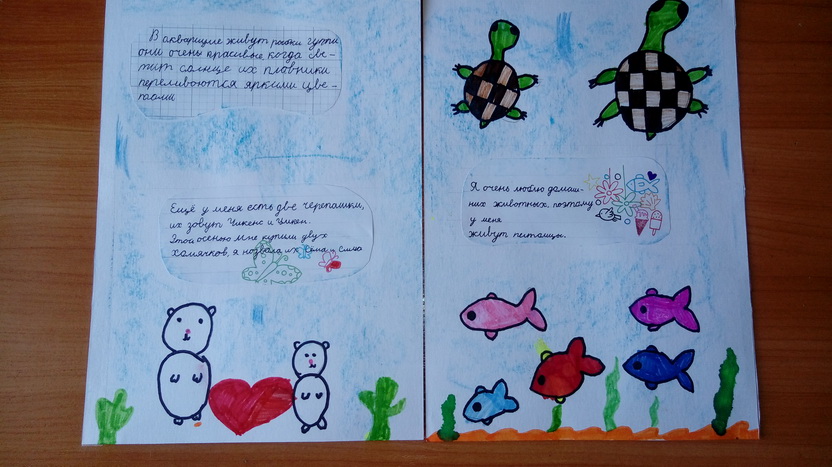 В аквариуме живут рыбки гуппи
они очень красивые когда све-
тит солнце их плавники
переливаются яркими цве-
тами
Ещё у меня есть две черепашки,
их зовут Чикенс и Цикен.
Этой осенью мне купили двух
хомячков, я назвала их Сёма и Сима
Я очень люблю домаш-
них животных, поэтому
у меня
живут питомцы.